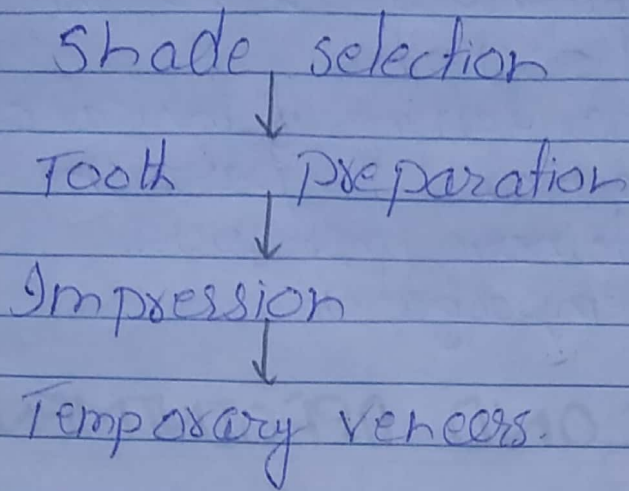 Shade selection
↓
Tooth preparation
↓
Impression
↓
Temporary veneers.